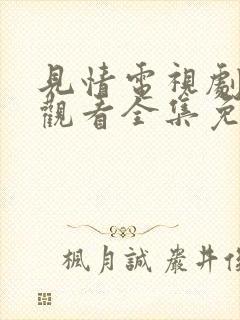 見情電視劇
觀看全集免
楓月誠 嚴井俊